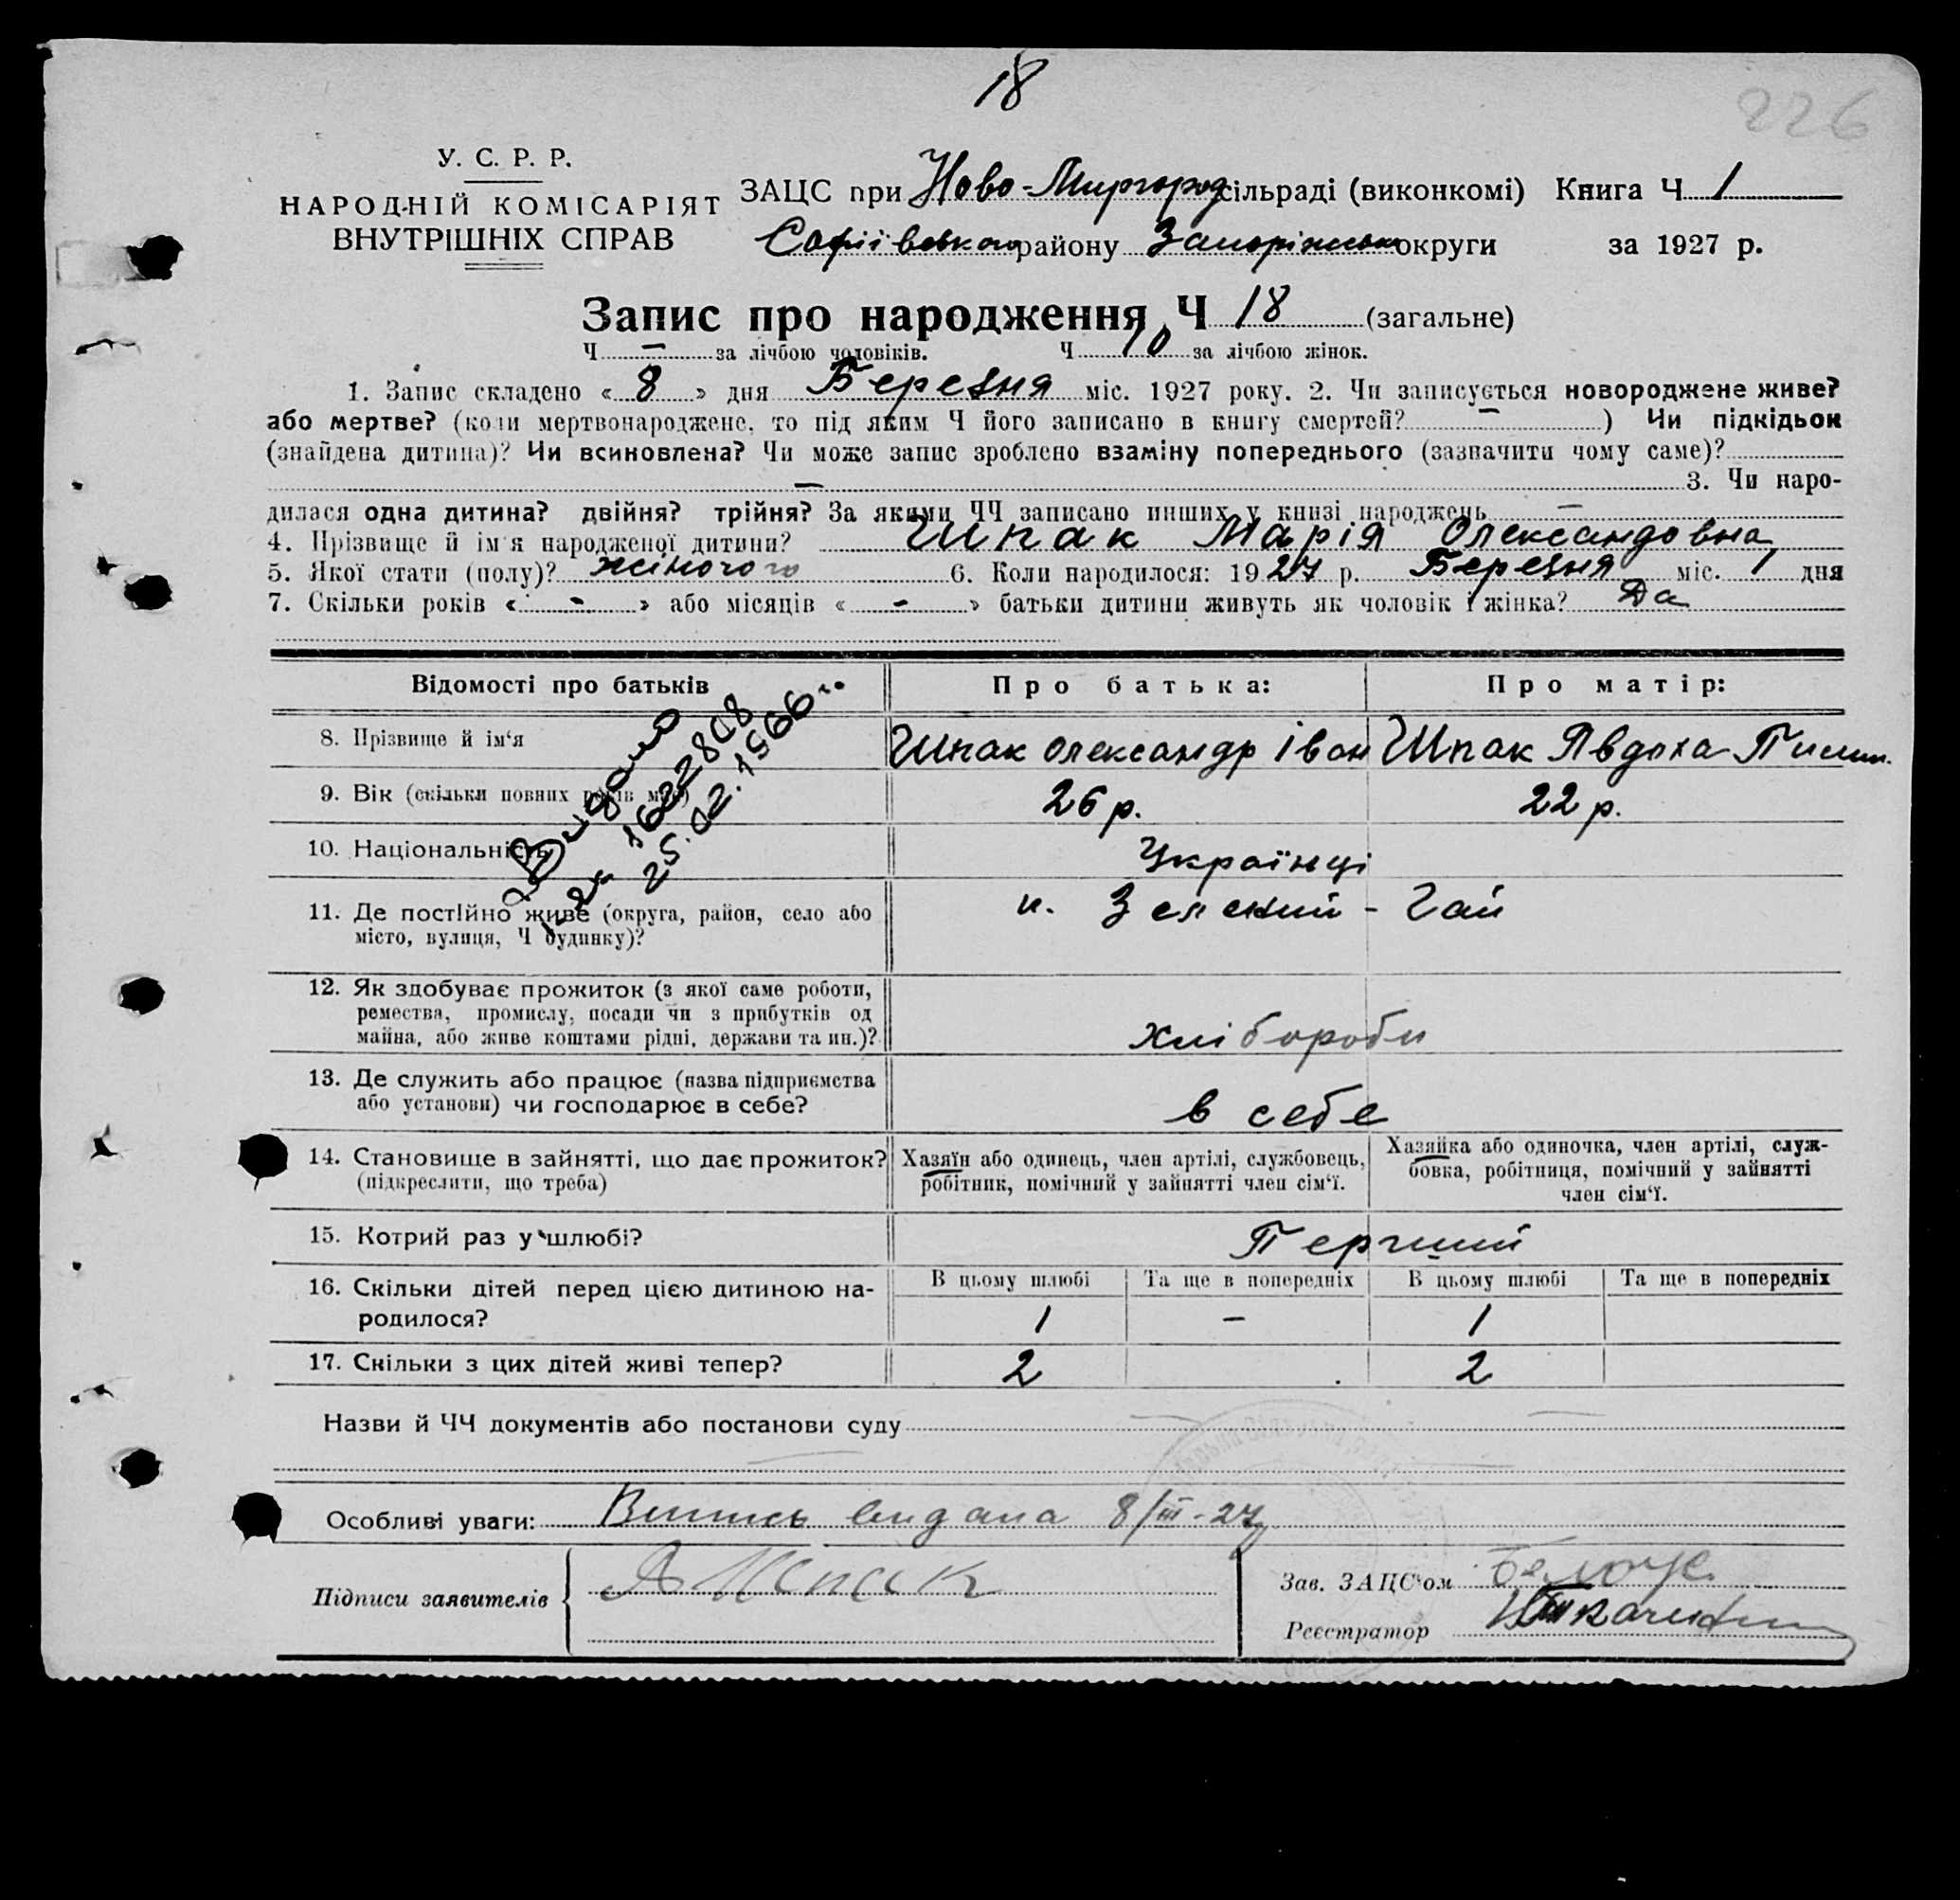 18
226
У. С. Р. Р.
НАРОДНІЙ КОМІСАРІЯТ
ВНУТРІШНІХ СПРАВ
ЗАЦС при Ново-Миргород сільраді (виконкомі) Книга Ч 1
Софіївського району Запоріжськ округи за 1927 р.
Запис про народження Ч 18 (загальне)
Ч — за лічбою чоловіків. Ч 10 за лічбою жінок.
1. Запис складено « 8 » дня Березня міс. 1927 року. 2. Чи записується новороджене живе?
або мертве? (коли мертвонароджене, то під яким Ч його записано в книгу смертей? — ) Чи підкідьок
(знайдена дитина)? Чи всиновлена? Чи може запис зроблено взаміну попереднього (зазначити чому саме)?
— 3. Чи наро-
дилася одна дитина? двійня? трійня? За якими ЧЧ записано инших у книзі народжень —
4. Прізвище й ім'я народженої дитини? Шпак Марія Олександовна
5. Якої стати (полу)? жіночого 6. Коли народилося: 1927 р. Березня міс. 1 дня
7. Скільки років « - » або місяців « - » батьки дитини живуть як чоловік і жінка? Да
Відомості про батьків Про батька: Про матір:
8. Прізвище й ім'я Шпак Олександр Іван Шпак Явдоха
9. Вік (скільки повних років має) 26 р. 22 р.
10. Національність Українці
11. Де постійно живе (округа, район, село або
місто, вулиця, Ч будинку)?
х. Зелений - Гай
Видано
1622808
25.02.1966 г.
12. Як здобуває прожиток (з якої саме роботи,
ремества, промислу, посади чи з прибутків од
майна, або живе коштами рідні, держави та ин.)?
хлібороби
13. Де служить або працює (назва підприємства
або установи) чи господарює в себе?
в себе
14. Становище в зайнятті, що дає прожиток?
(підкреслити, що треба)
Хазяїн або одинець, член артілі, службовець,
робітник, помічний у зайнятті член сім'ї.
Хазяйка або одиночка, член артілі, служ-
бовка, робітниця, помічний у зайнятті
член сім'ї.
15. Котрий раз у шлюбі? Перший
16. Скільки дітей перед цією дитиною на-
родилося?
В цьому шлюбі Та ще в попередніх В цьому шлюбі Та ще в попередніх
1 - 1
17. Скільки з цих дітей живі тепер? 2 2
Назви й ЧЧ документів або постанови суду
Особливі уваги: Випись видана 8/III-27
Підписи заявителів А Шпак
Зав. ЗАЦС'ом
Реєстратор